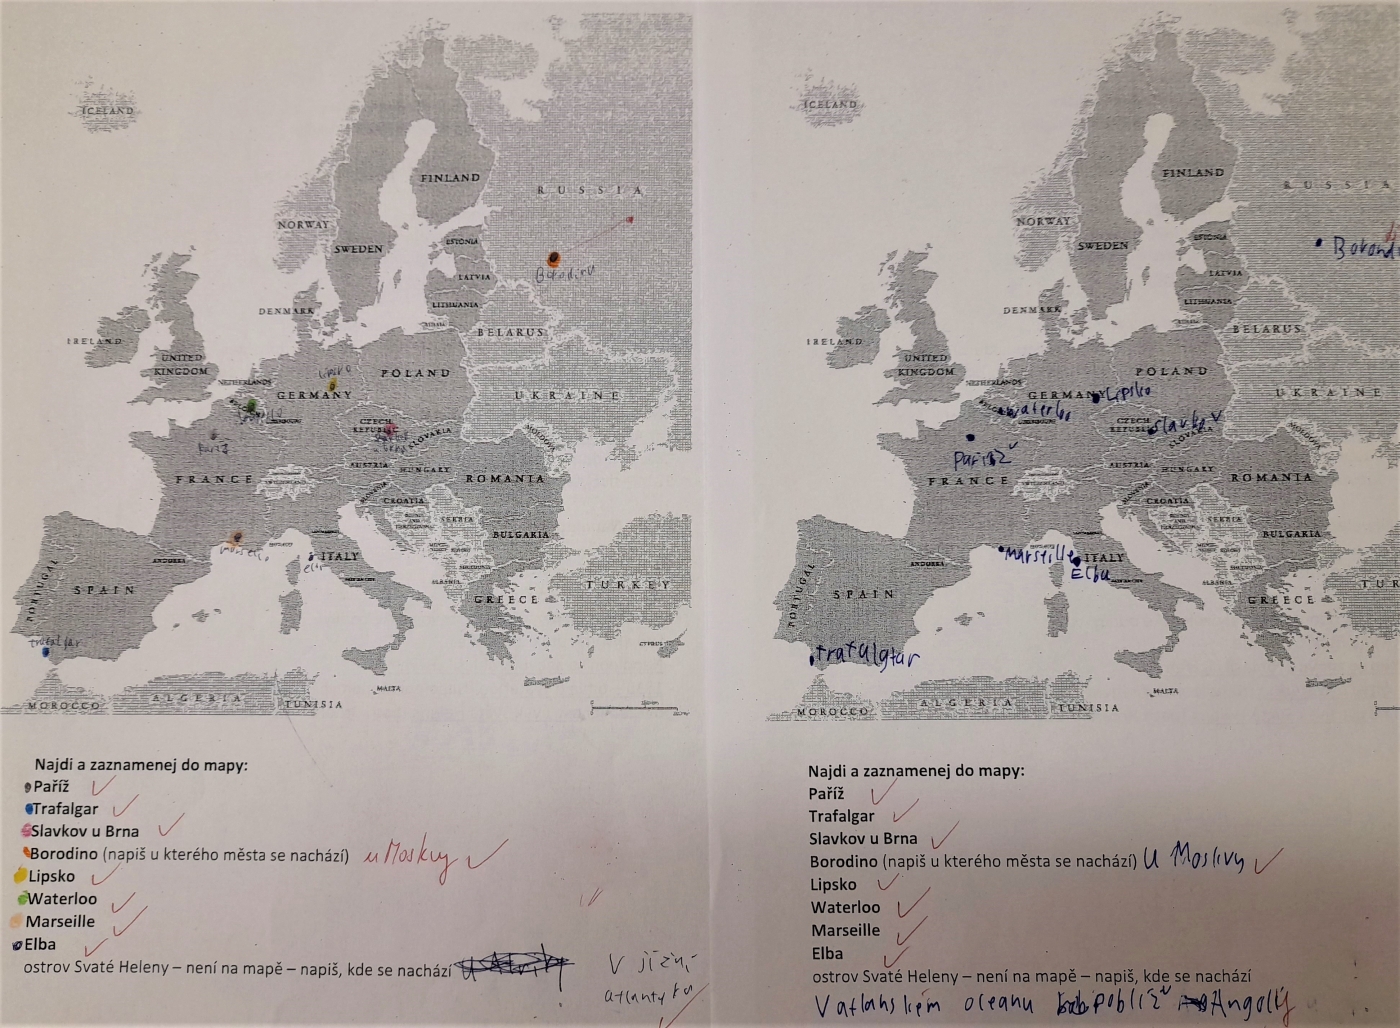 ICELAND
FINLAND
RUSSIA
NORWAY
SWEDEN
ESTONIA
Borodino
LATVIA
DENMARK
LITHUANIA
BELARUS
IRELAND
UNITED
KINGDOM
NETHERLANDS
Lipsko
POLAND
GERMANY
UKRAINE
CZECH
REPUBLIC
SLOVAKIA
Paříž
MOLDOVA
AUSTRIA
HUNGARY
FRANCE
ROMANIA
SLOVENIA
CROATIA
SERBIA
BULGARIA
ANDORRA
ITALY
ALBANIA
PORTUGAL
SPAIN
GREECE
TURKEY
trafalgar
CYPRUS
MALTA
MOROCCO
ALGERIA
TUNISIA
Najdi a zaznamenej do mapy:
Paříž
Trafalgar
Slavkov u Brna
Borodino (napiš u kterého města se nachází) u Moskvy
Lipsko
Waterloo
Marseille
Elba
ostrov Svaté Heleny – není na mapě – napiš, kde se nachází
V jižní
atlantyku
ICELAND
FINLAND
RUSSIA
NORWAY
SWEDEN
ESTONIA
LATVIA
DENMARK
LITHUANIA
BELARUS
IRELAND
UNITED
KINGDOM
NETHERLANDS
POLAND
GERMANY
Lipsko
UKRAINE
waterlo
CZECH
REPUBLIC
slavkov
SLOVAKIA
MOLDOVA
Paříž
AUSTRIA
HUNGARY
FRANCE
ROMANIA
SLOVENIA
CROATIA
SERBIA
BULGARIA
Marseille
ITALY
ANDORRA
Elba
ALBANIA
PORTUGAL
SPAIN
GREECE
TUR
trafalgar
MALTA
MOROCCO
ALGERIA
TUNISIA
Najdi a zaznamenej do mapy:
Paříž
Trafalgar
Slavkov u Brna
Borodino (napiš u kterého města se nachází) U Moskvy
Lipsko
Waterloo
Marseille
Elba
ostrov Svaté Heleny – není na mapě – napiš, kde se nachází
V atlanskiém oceanu poblíž Angoly